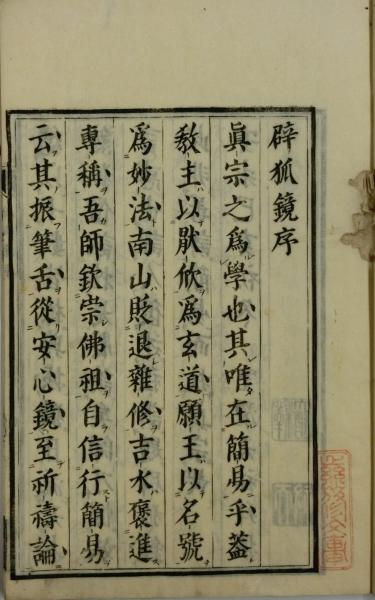 辟狐鏡序
眞宗之爲學也其唯在簡易乎蓋
敎主以猒忻爲玄道願王以名號
爲妙法南山貶退雜修吉水褒進
專稱吾師欽崇佛祖自信行簡易
云其振筆舌從安心鏡至祈禱論